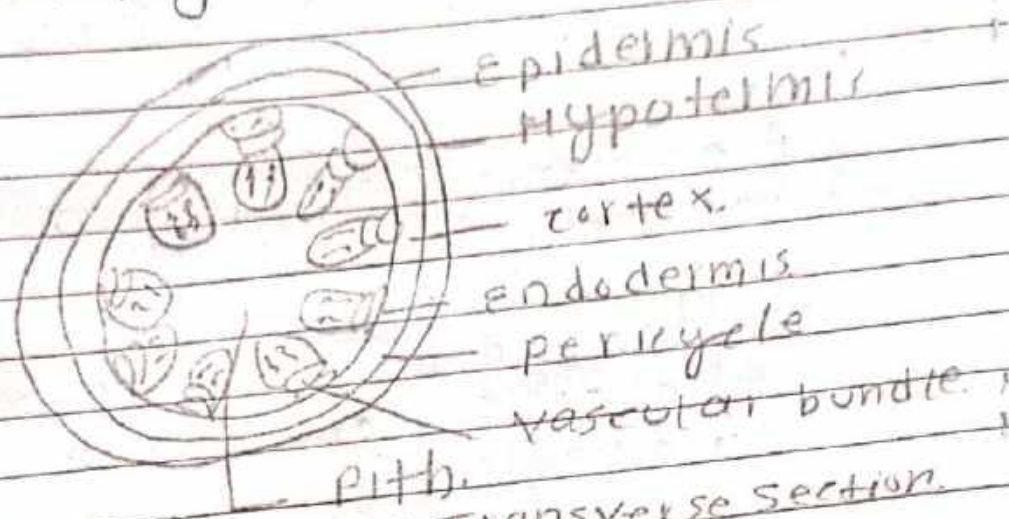 Epidermis
Hypotelmis
cortex.
Endodermis
pericycle
vascular bundle.
Pith.
Transverse section.